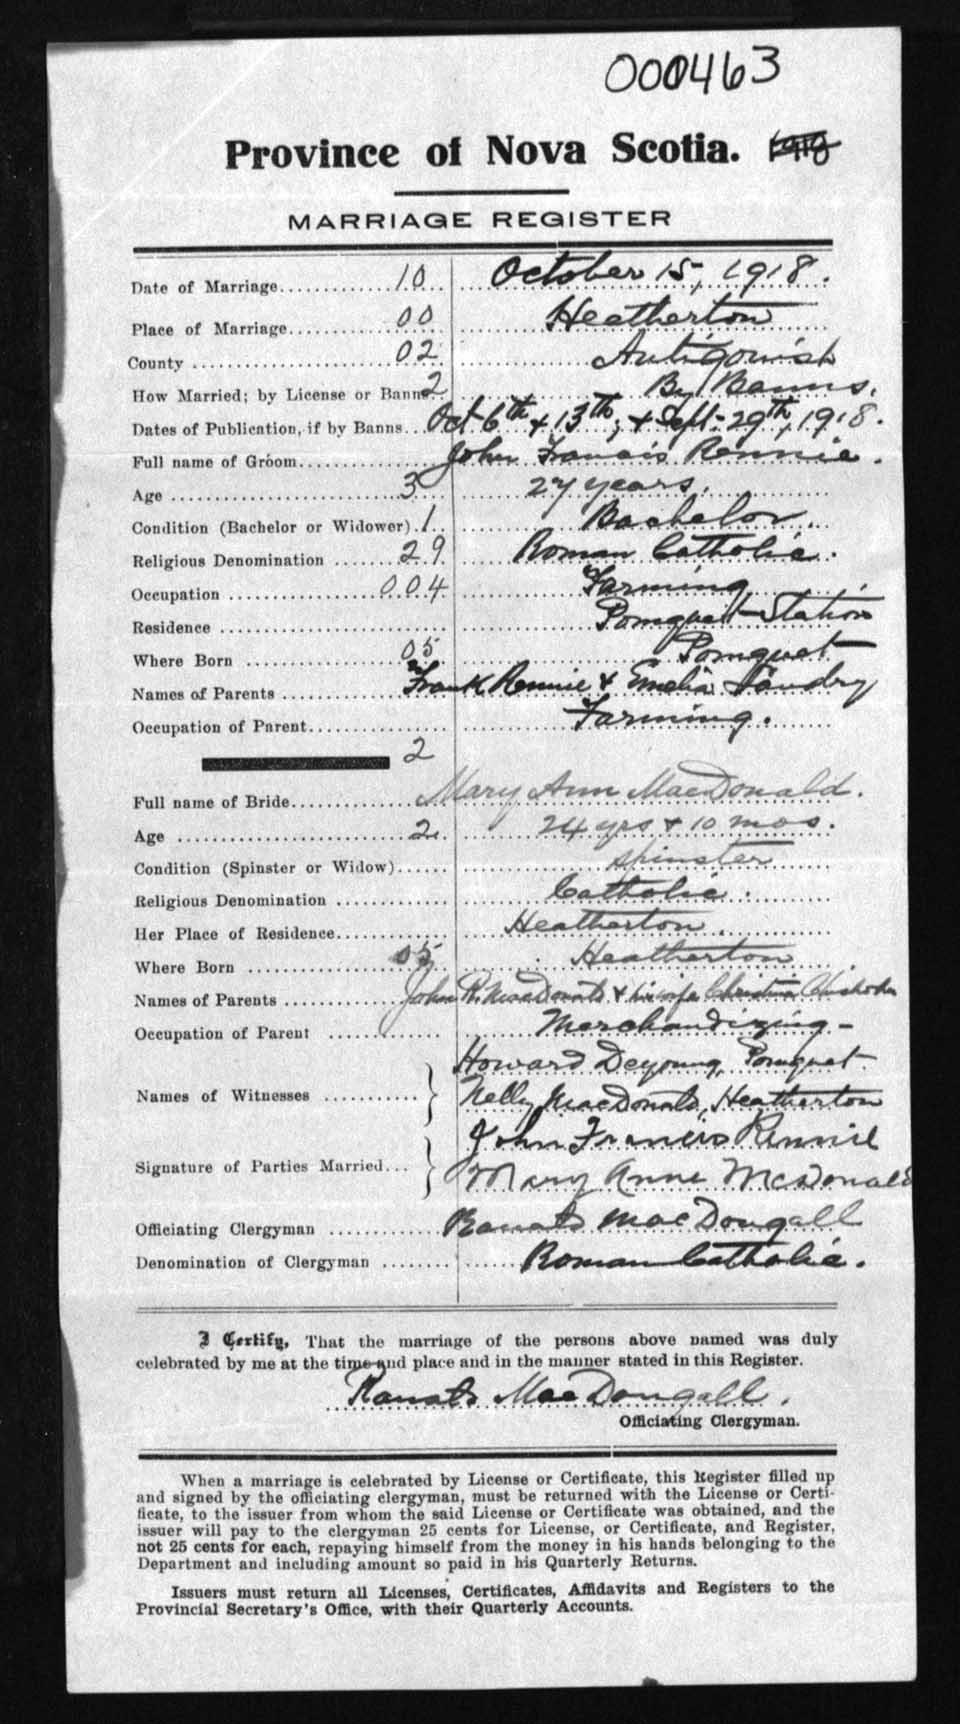 000463
Province of Nova Scotia. 1918
MARRIAGE REGISTER
Date of Marriage 10 October 15, 1918.
Place of Marriage 00 Heatherton
County 02 Antigonish
How Married; by License or Banns 2 By Banns.
Dates of Publication, if by Banns Oct 6th + 13th; + Sept. 29th, 1918.
Full name of Groom John Francis Rennie.
Age 3 27 years.
Condition (Bachelor or Widower) 1 Bachelor.
Religious Denomination 29 Roman Catholic.
Occupation 004 Farming
Residence Pomquet Station
Where Born 05 Pomquet
Names of Parents Frank Rennie & Emelia Landry
Occupation of Parent Farming.
2
Full name of Bride Mary Ann MacDonald.
Age 2 24 yrs + 10 mos.
Condition (Spinster or Widow) Spinster
Religious Denomination Catholic.
Her Place of Residence Heatherton.
Where Born 05 Heatherton
Names of Parents John R. MacDonald & his wife Christina Chisholm
Occupation of Parent Merchandizing -
Howard Deyoung, Pomquet
Names of Witnesses Nelly MacDonald, Heatherton
John Francis Rennie
Signature of Parties Married Mary Anne McDonald
Officiating Clergyman Ronald MacDougall
Denomination of Clergyman Roman Catholic.
I Certify, That the marriage of the persons above named was duly
celebrated by me at the time and place and in the manner stated in this Register.
Ronald MacDougall.
Officiating Clergyman.
When a marriage is celebrated by License or Certificate, this Register filled up
and signed by the officiating clergyman, must be returned with the License or Certi-
ficate, to the issuer from whom the said License or Certificate was obtained, and the
issuer will pay to the clergyman 25 cents for License, or Certificate, and Register,
not 25 cents for each, repaying himself from the money in his hands belonging to the
Department and including amount so paid in his Quarterly Returns.
Issuers must return all Licenses, Certificates, Affidavits and Registers to the
Provincial Secretary's Office, with their Quarterly Accounts.